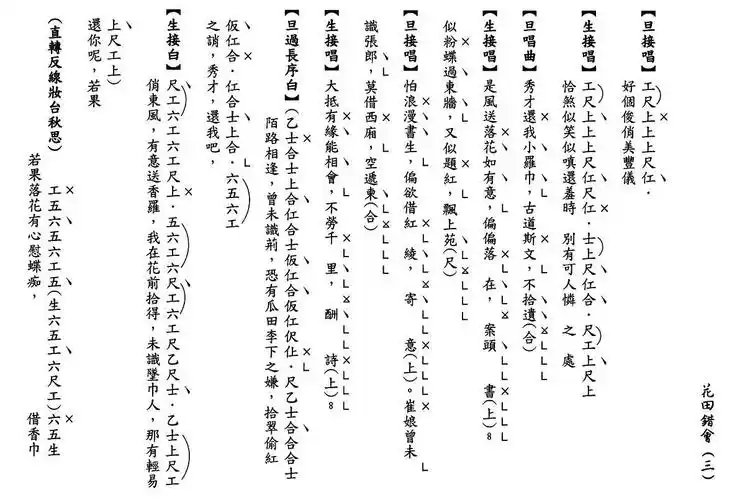 花田錯會(三)
【旦接唱】工尺上上上尺仜.
好個俊俏美豐儀
【生接唱】工尺上上上尺仜尺仜.士上尺仜合.尺工上尺上
恰煞似笑似嗔還羞時 別有可人憐 之 處
【旦唱曲】秀才還我小羅巾,古道斯文,不拾遺(合)
【生接唱】是風送落花如有意,偏偏落 在, 案頭 書(上)。
似粉蝶過東牆,又似題紅,飄上苑(尺)
【旦接唱】怕浪漫書生,偏欲借紅 綾, 寄 意(上)。崔娘曾未
識張郎,莫借西廂,空遞東(合)
【生接唱】大抵有緣能相會,不勞千 里, 酬 詩(上)。
【旦過長序白】(乙士合士上合仜合士仮仜合仮仜伬仩.尺乙士合合合士
陌路相逢,曾未識荊,恐有瓜田李下之嫌,拾翠偷紅
仮仜合.仁合士上合.六五六工
之誚,秀才,還我吧,
【生接白】尺工六工六工尺上.五六工六尺工六工尺乙尺士.乙士上尺工
俏東風,有意送香羅,我在花前拾得,未識墜巾人,那有輕易
上尺工上)
還你呢,若果
(直轉反線妝台秋思)
工五六五六工五(生六五工六尺工)六五生
若果落花有心慰蝶痴, 借香巾